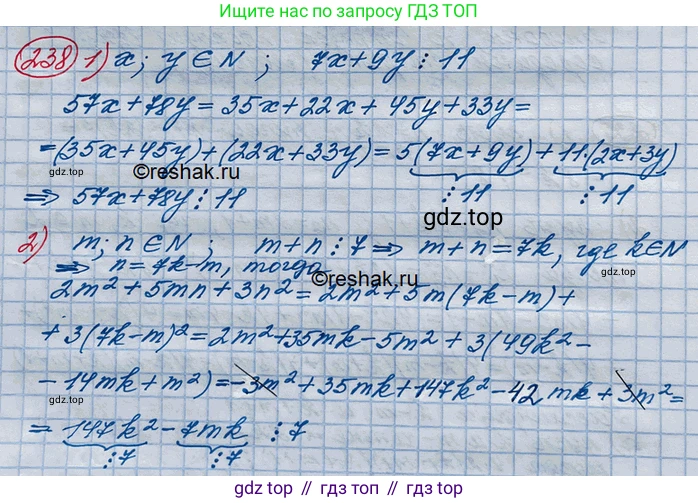 Ищите нас в поиске
по запросу ГДЗ ТОП
238 1) x; y ∈ N ; 7x+9y ⋮ 11
57x+78y = 35x+22x+45y+33y =
=(35x+45y)+(22x+33y)= 5(7x+9y)+11·(2x+3y)
gdz.top ⋮11 ⋮11
©reshak.ru
⇒ 57x+78y ⋮ 11
gdz.top
2) m; n ∈ N ; m+n ⋮ 7 ⇒ m+n = 7k, где k∈N
⇒ n=7k-m, тогда
©reshak.ru
gdz.top
2m²+5mn+3n² = 2m²+5m(7k-m)+
+3(7k-m)² = 2m²+35mk-5m²+3(49k²-
-14mk+m²)=-3m²+35mk+147k²-42mk+3m²=
= 147k²-7mk ⋮7
⋮7 ⋮7
gdz.top // гдз.топ // gdz.top